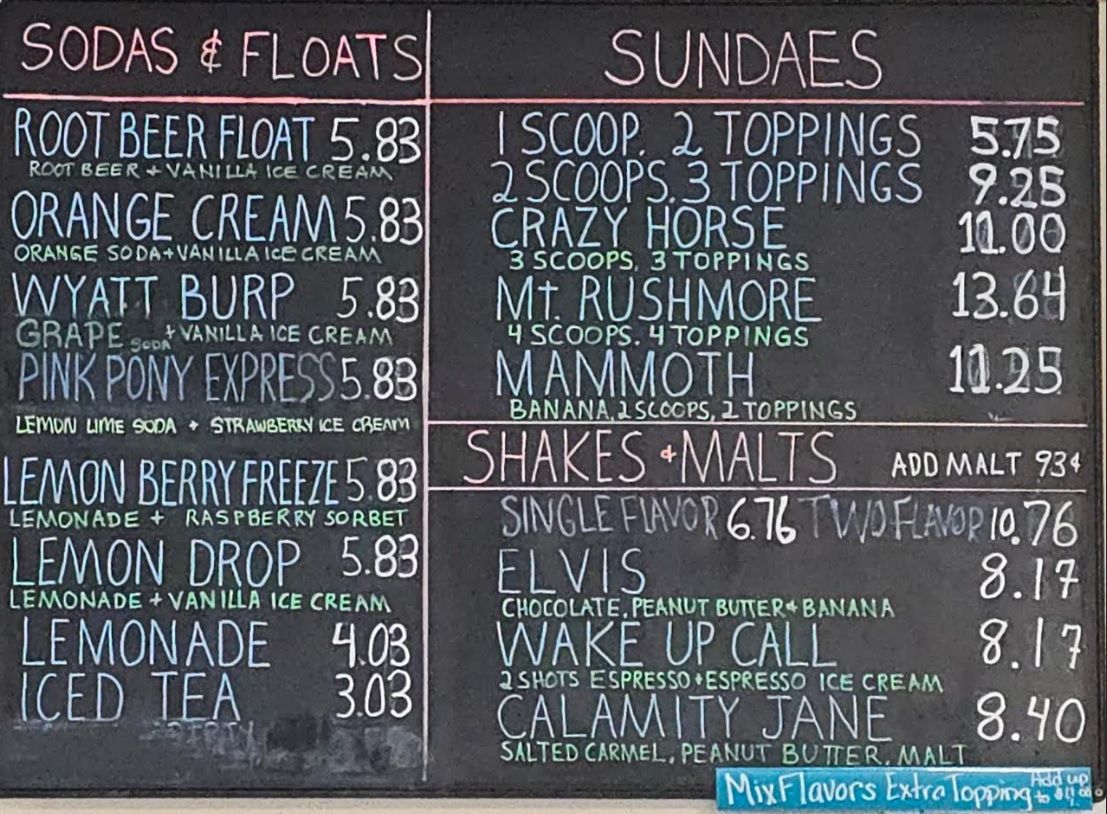 SODAS & FLOATS
ROOT BEER FLOAT 5.83
ROOT BEER + VANILLA ICE CREAM
ORANGE CREAM 5.83
ORANGE SODA + VANILLA ICE CREAM
WYATT BURP 5.83
GRAPE SODA + VANILLA ICE CREAM
PINK PONY EXPRESS 5.83
LEMON LIME SODA + STRAWBERRY ICE CREAM
LEMON BERRY FREEZE 5.83
LEMONADE + RASPBERRY SORBET
LEMON DROP 5.83
LEMONADE + VANILLA ICE CREAM
LEMONADE 4.03
ICED TEA 3.03
SUNDAES
1 SCOOP. 2 TOPPINGS 5.75
2 SCOOPS. 3 TOPPINGS 9.25
CRAZY HORSE 11.00
3 SCOOPS. 3 TOPPINGS
Mt. RUSHMORE 13.64
4 SCOOPS. 4 TOPPINGS
MAMMOTH 11.25
BANANA, 2 SCOOPS, 2 TOPPINGS
SHAKES & MALTS ADD MALT 93¢
SINGLE FLAVOR 6.76 TWO FLAVOR 10.76
ELVIS 8.17
CHOCOLATE, PEANUT BUTTER + BANANA
WAKE UP CALL 8.17
2 SHOTS ESPRESSO + ESPRESSO ICE CREAM
CALAMITY JANE 8.40
SALTED CARMEL, PEANUT BUTTER, MALT
Mix Flavors Extra Topping Add up
to